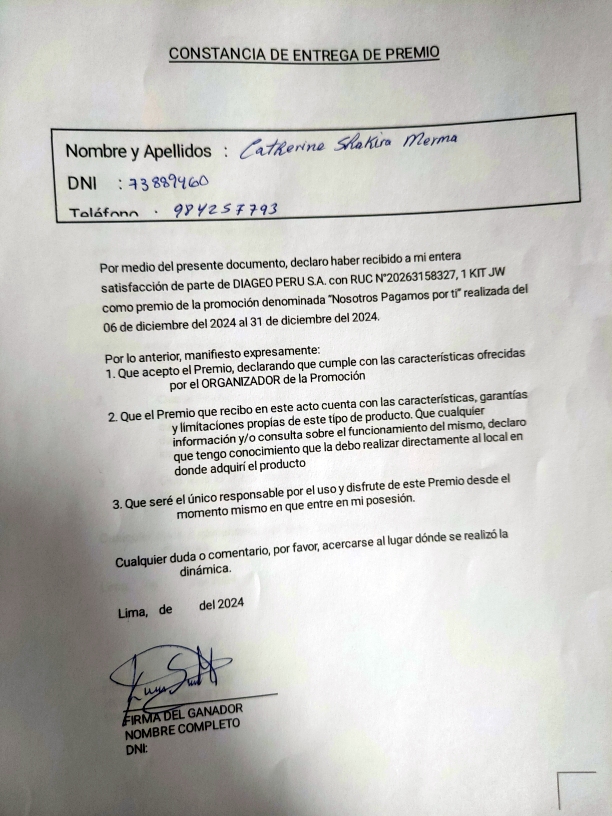 CONSTANCIA DE ENTREGA DE PREMIO
Nombre y Apellidos : Catherine Shakira Merma
DNI : 73889460
Teléfono : 984257793
Por medio del presente documento, declaro haber recibido a mi entera
satisfacción de parte de DIAGEO PERU S.A. con RUC N°20263158327, 1 KIT JW
como premio de la promoción denominada "Nosotros Pagamos por ti" realizada del
06 de diciembre del 2024 al 31 de diciembre del 2024.
Por lo anterior, manifiesto expresamente:
1. Que acepto el Premio, declarando que cumple con las características ofrecidas
por el ORGANIZADOR de la Promoción
2. Que el Premio que recibo en este acto cuenta con las características, garantías
y limitaciones propias de este tipo de producto. Que cualquier
información y/o consulta sobre el funcionamiento del mismo, declaro
que tengo conocimiento que la debo realizar directamente al local en
donde adquirí el producto
3. Que seré el único responsable por el uso y disfrute de este Premio desde el
momento mismo en que entre en mi posesión.
Cualquier duda o comentario, por favor, acercarse al lugar dónde se realizó la
dinámica.
Lima, de del 2024
FIRMA DEL GANADOR
NOMBRE COMPLETO
DNI: